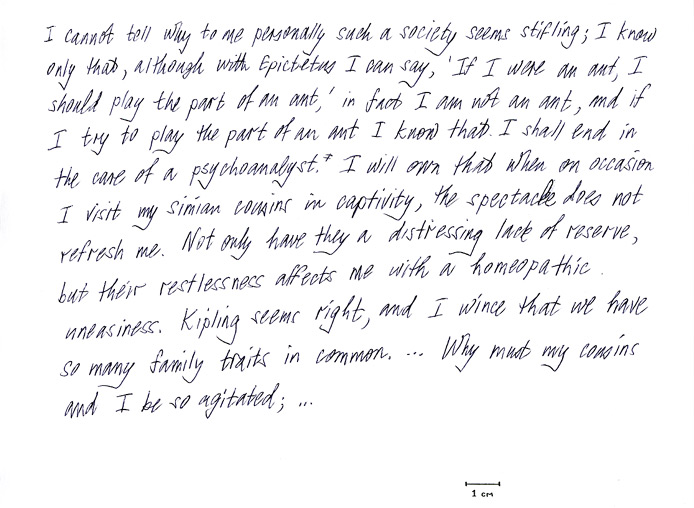 I cannot tell why to me personally such a society seems stifling; I know
only that, although with Epictetus I can say, 'If I were an ant, I
should play the part of an ant,' in fact I am not an ant, and if
I try to play the part of an ant I know that I shall end in
the care of a psychoanalyst.* I will own that when on occasion
I visit my simian cousins in captivity, the spectacle does not
refresh me. Not only have they a distressing lack of reserve,
but their restlessness affects me with a homeopathic
uneasiness. Kipling seems right, and I wince that we have
so many family traits in common. ... Why must my cousins
and I be so agitated; ...
1 cm